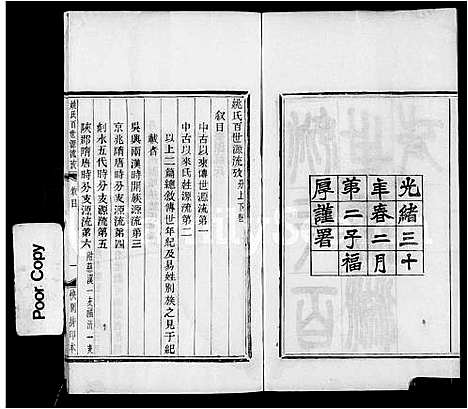 光緒三十
年春二月
第二子福
厚謹署
姚氏百世源流攷 系上下卷
叙目
中古以來傳世源流第一
中古以來氏姓源流第二
以上二篇總敘傳世年紀及易姓別族之見于紀
載者
吳興兩漢時開族源流第三
京兆隋唐時分支源流第四
剡水五代時分支源流第五
陝郡隋唐時分支源流第六 附慈溪一支
姚氏百世源流攷 叙目 一
Poor Copy